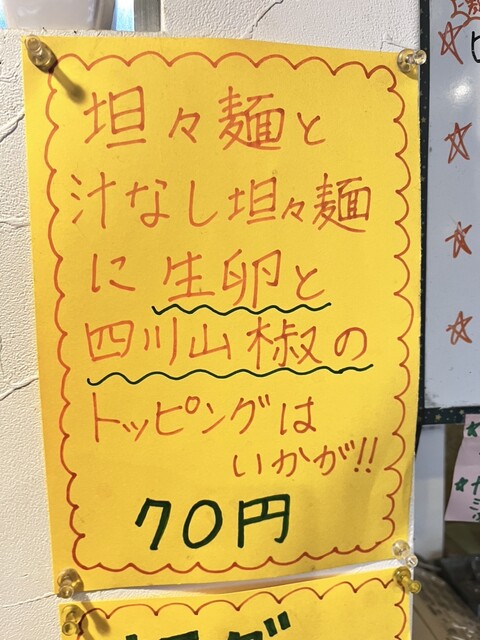 坦々麺と
汁なし坦々麺
に生卵と
四川山椒の
トッピングは
いかが!!
70円